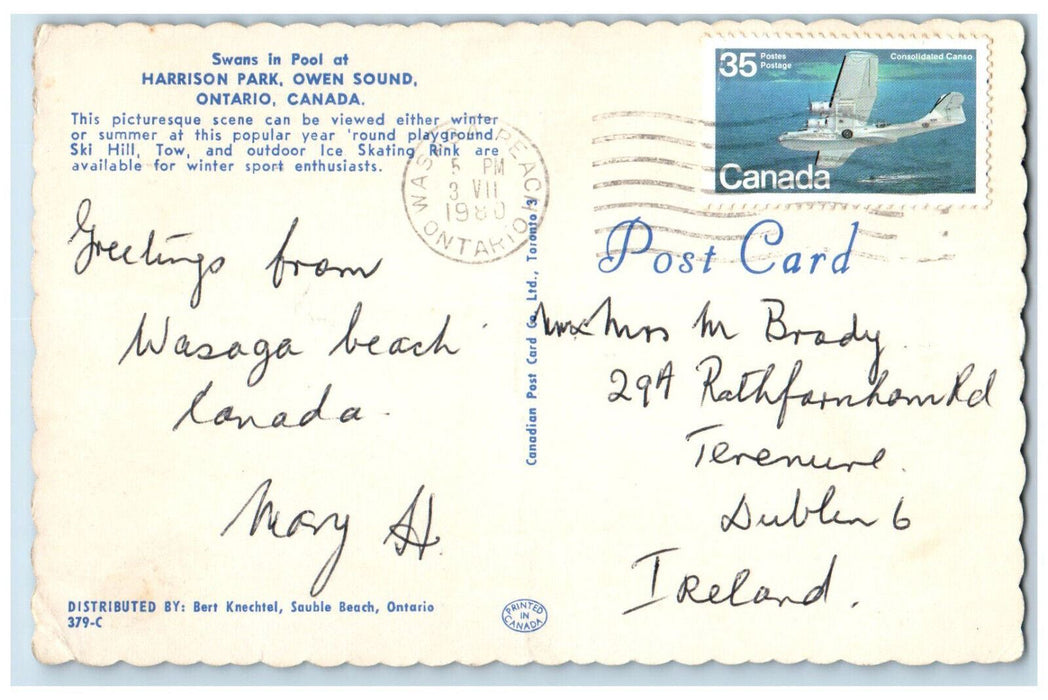 Swans in Pool at
HARRISON PARK, OWEN SOUND,
ONTARIO, CANADA.
This picturesque scene can be viewed either winter
or summer at this popular year 'round playground.
Ski Hill, Tow, and outdoor Ice Skating Rink are
available for winter sport enthusiasts.
BEACH
5 PM
3 VII
1980
ONTARIO
35 Postes
Postage
Consolidated Canso
Canada
Post Card
Greetings from
Wasaga beach
Canada.
Mary H.
Canadian Post Card Co. Ltd., Toronto 3
Mrs M Brady.
29A Rathfarnham Rd
Terenure.
Dublin 6
Ireland.
DISTRIBUTED BY: Bert Knechtel, Sauble Beach, Ontario
379-C
PRINTED
IN
CANADA